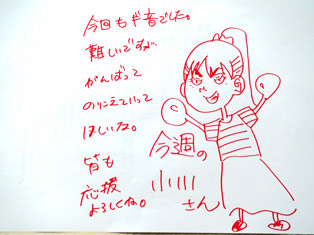 今回もギ音でした。
難しいですが
がんばって
のりこえていって
ほしいな。
皆も
応援
よろしくね。
今週の
小川
さん